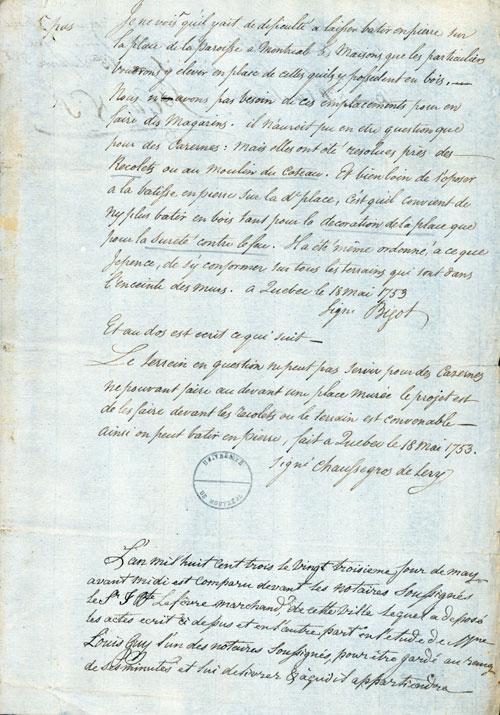 5 pas
Je ne vois qu'il y ait de dificulté a laisser batir en pierre sur
la place de la Paroisse a Montreal les Maisons que les particuliers
voudront y élever en place de celles qu'ils y possedent en bois. —
Nous n'avons pas besoin de ces emplacements pour en
faire des Magazins. il n'auroit pu en être question que
pour des Cazernes. mais elles ont été resolues près des
Recolets ou au Moulin du Coteau. Et bien loin de s'oposer
a la batisse en pierre sur la de place, c'est qu'il convient de
n'y plus batir en bois tant pour la decoration de la place que
pour la sureté contre le feu. Il a été même ordonné, a ce que
Je pence, de s'y conformer sur tous les terrains qui sont dans
l'enceinte des murs. a Quebec le 18 mai 1753
Signé Bigot
Et au dos est ecrit ce qui suit —
Le terrein en question ne peut pas servir pour des Cazernes
ne pouvant faire au devant une place murée le projet est
de les faire devant les Recolets ou le terrain est convenable —
ainsi on peut batir en pierre, fait a Quebec le 18 mai 1753.
Signé Chaussegros de Lery
UNIVERSITÉ
DE MONTRÉAL
L'an mil huit cent trois le vingt troisieme jour de may
avant midi est comparu devant les notaires soussignés
le Sr. J Bte Lefevre marchand de cette Ville lequel a deposé
les actes ecrit ci dessus et en l'autre part en l'etude de Mtre
Louis Guy l'un des notaires soussignés, pour être gardé au rang
de ses minutes et lui delivrer & à qui il appartiendra